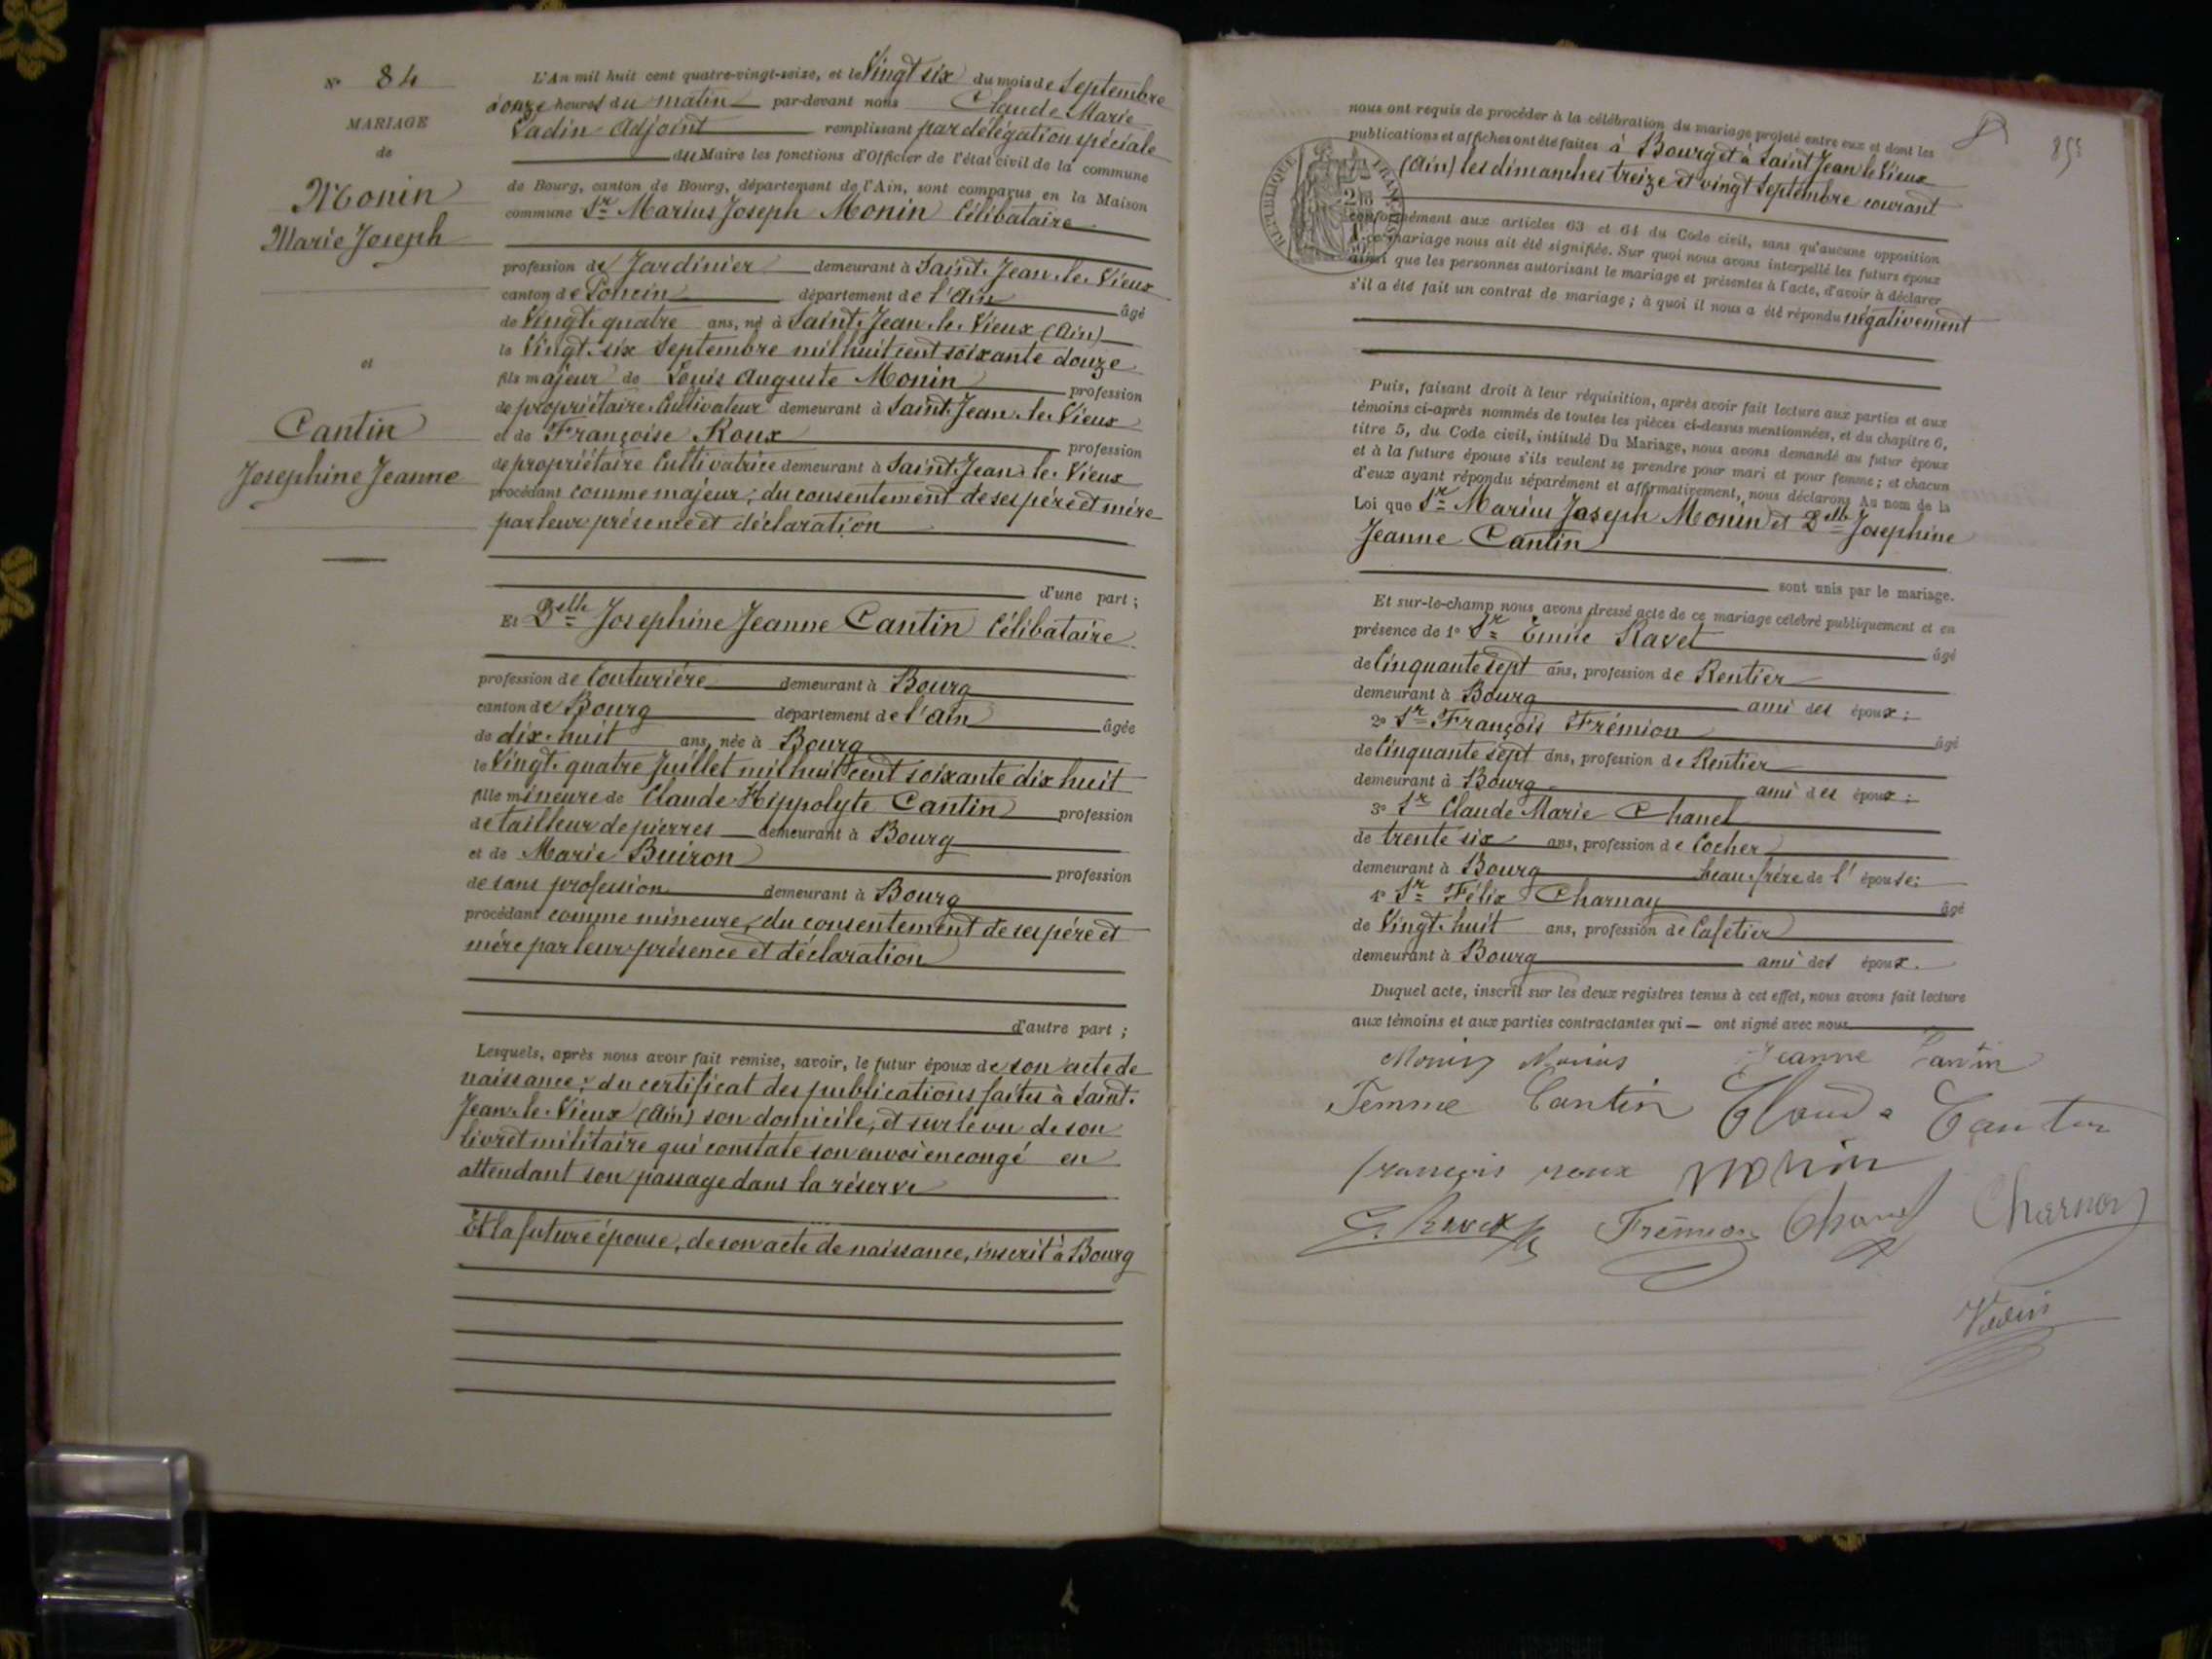 N° 84
MARIAGE
de
Monin
Marie Joseph
et
Cantin
Josephine Jeanne
L'An mil huit cent quatre-vingt-seize, et le Vingt six du mois de Septembre
à onze heures du matin par-devant nous Claude Marie
Vadin Adjoint remplissant par délégation spéciale
du Maire les fonctions d'Officier de l'état civil de la commune
de Bourg, canton de Bourg, département de l'Ain, sont comparus en la Maison
commune Sr Marius Joseph Monin Célibataire
profession de Jardinier demeurant à Saint-Jean-le-Vieux
canton de Poncin département de l'Ain âgé
de Vingt-quatre ans, né à Saint-Jean-le-Vieux (Ain)
le Vingt-six Septembre mil huit cent soixante douze
fils majeur de Louis Auguste Monin profession
de propriétaire Cultivateur demeurant à Saint-Jean-le-Vieux
et de Françoise Roux profession
de propriétaire Cultivatrice demeurant à Saint-Jean-le-Vieux
procédant comme majeur, du consentement de ses père et mère
par leur présence et déclaration
d'une part ;
Et Delle Josephine Jeanne Cantin Célibataire
profession de Couturière demeurant à Bourg
canton de Bourg département de l'Ain âgée
de dix-huit ans, née à Bourg
le Vingt-quatre Juillet mil huit cent soixante dix huit
fille mineure de Claude Hippolyte Cantin profession
de tailleur de pierres demeurant à Bourg
et de Marie Buiron profession
de sans profession demeurant à Bourg
procédant comme mineure, du consentement de ses père et
mère par leur présence et déclaration
d'autre part ;
Lesquels, après nous avoir fait remise, savoir, le futur époux de son acte de
naissance ; du certificat des publications faites à Saint-
Jean-le-Vieux (Ain) son domicile, et sur le vu de son
livret militaire qui constate son envoi en congé en
attendant son passage dans la réserve
Et la future épouse, de son acte de naissance, inscrit à Bourg
85
nous ont requis de procéder à la célébration du mariage projeté entre eux et dont les
publications et affiches ont été faites à Bourg et à Saint Jean le Vieux
(Ain) les dimanches treize et vingt Septembre courant
RÉPUBLIQUE FRANÇAISE
conformément aux articles 63 et 64 du Code civil, sans qu'aucune opposition
à ce mariage nous ait été signifiée. Sur quoi nous avons interpellé les futurs époux
ainsi que les personnes autorisant le mariage et présentes à l'acte, d'avoir à déclarer
s'il a été fait un contrat de mariage ; à quoi il nous a été répondu négativement
Puis, faisant droit à leur réquisition, après avoir fait lecture aux parties et aux
témoins ci-après nommés de toutes les pièces ci-dessus mentionnées, et du chapitre 6,
titre 5, du Code civil, intitulé Du Mariage, nous avons demandé au futur époux
et à la future épouse s'ils veulent se prendre pour mari et pour femme ; et chacun
d'eux ayant répondu séparément et affirmativement, nous déclarons Au nom de la
Loi que Sr Marius Joseph Monin et Delle Josephine
Jeanne Cantin
sont unis par le mariage.
Et sur-le-champ nous avons dressé acte de ce mariage célébré publiquement et en
présence de 1° Sr Emile Ravet âgé
de Cinquante sept ans, profession de Rentier
demeurant à Bourg ami des époux ;
2° Sr François Frémion âgé
de Cinquante sept ans, profession de Rentier
demeurant à Bourg ami des époux ;
3° Sr Claude Marie Chanel
de trente six ans, profession de Cocher
demeurant à Bourg beau-frère de l'épouse ;
4° Sr Félix Charnay âgé
de Vingt-huit ans, profession de Cafetier
demeurant à Bourg ami des époux.
Duquel acte, inscrit sur les deux registres tenus à cet effet, nous avons fait lecture
aux témoins et aux parties contractantes qui — ont signé avec nous
Monin Marius Jeanne Cantin
Femme Cantin Claude Cantin
françois roux Monin
E. Ravet Frémion Chanel Charnay
Vadin